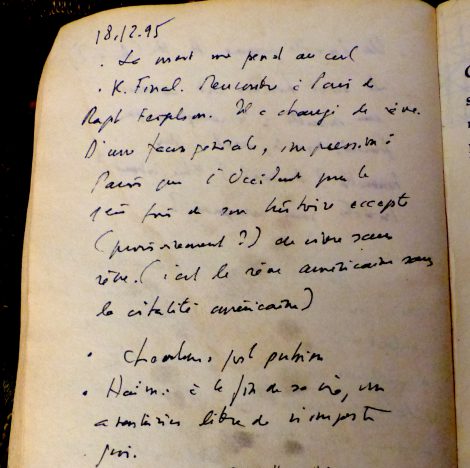 18.12.95
. La mort me pend au cul
. K. Final. Rencontre à Paris de
Il a changé de rêve.
D'une façon générale, impression à
Paris que l'Occident pour la
1ère fois de son histoire accepte
(provisoirement ?) de vivre sans
rêve. (c'est le rêve américain sans
la vitalité américaine)
.
. à la fin de sa vie, un
libre de n'importe
quoi.